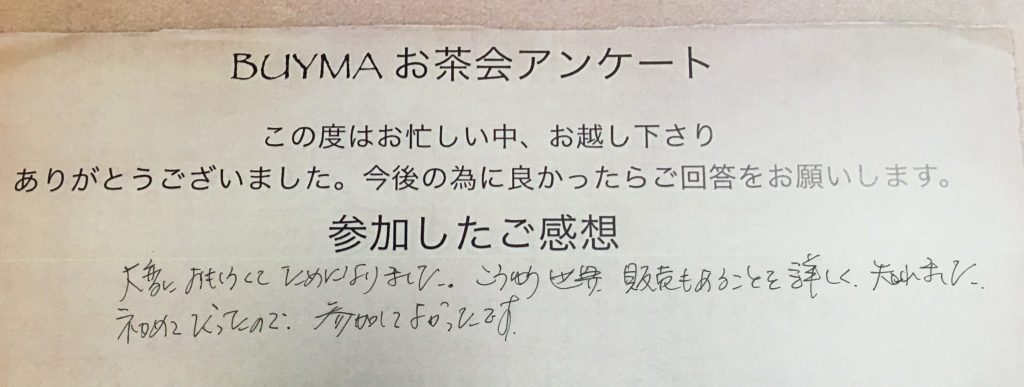 BUYMA お茶会アンケート
この度はお忙しい中、お越し下さり
ありがとうございました。今後の為に良かったらご回答をお願いします。
参加したご感想
大変に おもしろくて ためになりました。こういう 世界、販売もあることを 詳しく、知れました。
初めてだったので、参加してよかったです。